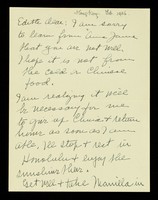 Hong Kong Feb
Edith dear: I am sorry
to learn from
that you are not well.
I hope it is not from
the cold or Chinese
food.
I am realizing it will
be necessary for me
to give up China & return
home as soon as I am
able. Ill stop & rest in
Honolulu & enjoy the
sunshine there.
Get well & take Manilla in